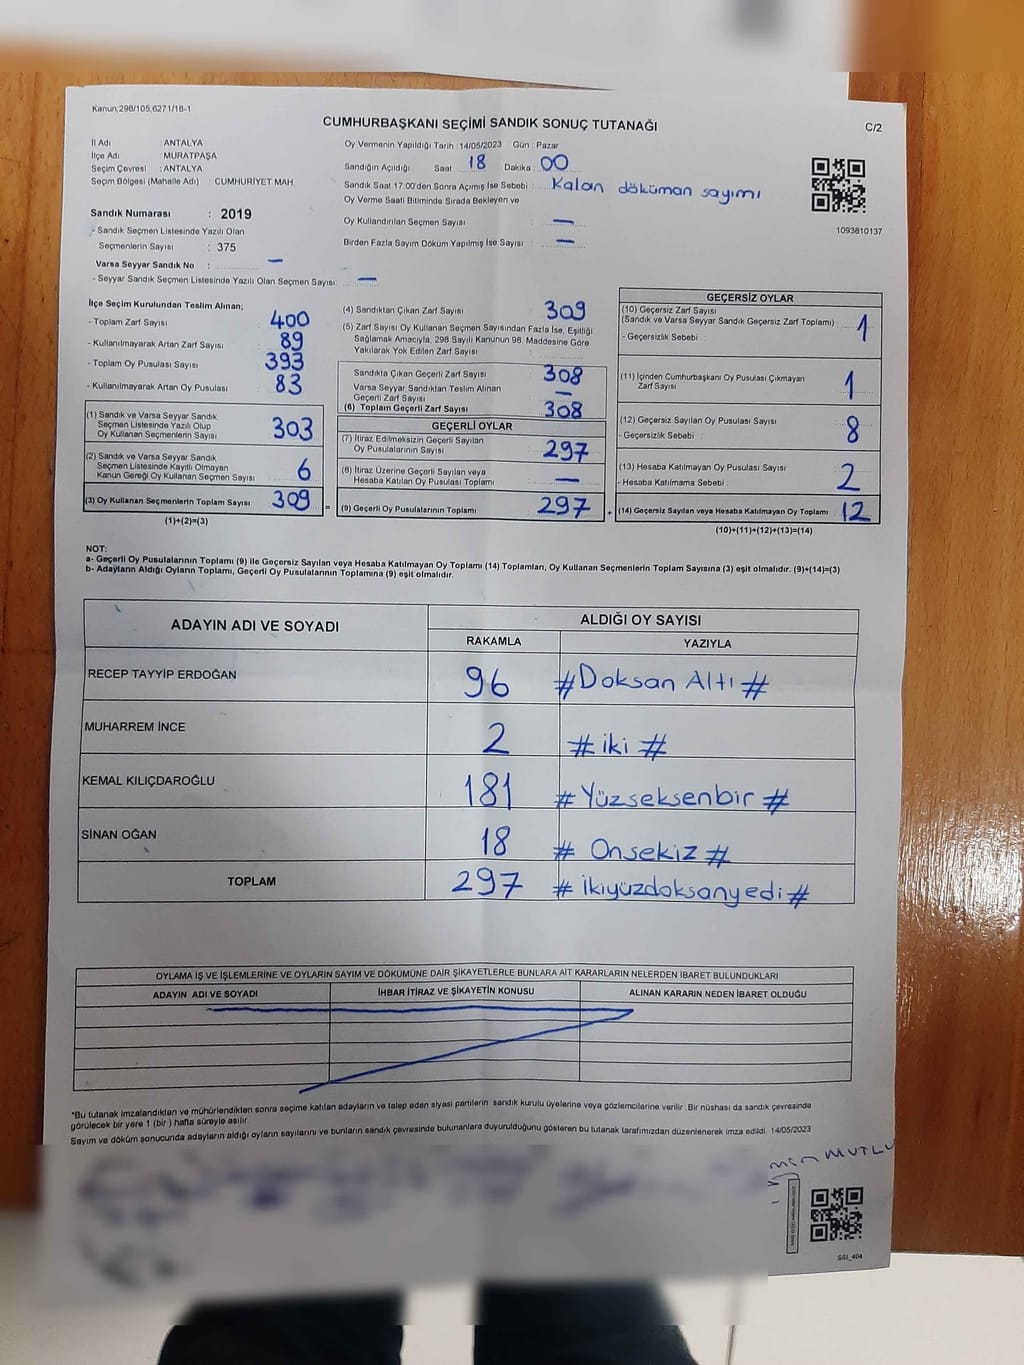 Kanun:298/105,6271/18-1
CUMHURBAŞKANI SEÇİMİ SANDIK SONUÇ TUTANAĞI
C/2
İl Adı : ANTALYA
İlçe Adı : MURATPAŞA
Seçim Çevresi : ANTALYA
Seçim Bölgesi (Mahalle Adı) CUMHURİYET MAH.
Sandık Numarası : 2019
- Sandık Seçmen Listesinde Yazılı Olan
Seçmenlerin Sayısı : 375
Varsa Seyyar Sandık No : —
- Seyyar Sandık Seçmen Listesinde Yazılı Olan Seçmen Sayısı: —
Oy Vermenin Yapıldığı Tarih : 14/05/2023 Gün : Pazar
Sandığın Açıldığı Saat 18 Dakika 00
Sandık Saat 17:00'den Sonra Açımış İse Sebebi : Kalan döküman sayımı
Oy Verme Saati Bitiminde Sırada Bekleyen ve
Oy Kullandırılan Seçmen Sayısı : —
Birden Fazla Sayım Döküm Yapılmış İse Sayısı : —
1093810137
İlçe Seçim Kurulundan Teslim Alınan;
- Toplam Zarf Sayısı : 400
- Kullanılmayarak Artan Zarf Sayısı : 89
- Toplam Oy Pusulası Sayısı : 393
- Kullanılmayarak Artan Oy Pusulası : 83
(1) Sandık ve Varsa Seyyar Sandık
Seçmen Listesinde Yazılı Olup
Oy Kullanan Seçmenlerin Sayısı 303
(2) Sandık ve Varsa Seyyar Sandık
Seçmen Listesinde Kayıtlı Olmayan
Kanun Gereği Oy Kullanan Seçmen Sayısı 6
(3) Oy Kullanan Seçmenlerin Toplam Sayısı 309
(1)+(2)=(3)
(4) Sandıktan Çıkan Zarf Sayısı 309
(5) Zarf Sayısı Oy Kullanan Seçmen Sayısından Fazla İse, Eşitliği
Sağlamak Amacıyla, 298 Sayılı Kanunun 98. Maddesine Göre
Yakılarak Yok Edilen Zarf Sayısı
Sandıkta Çıkan Geçerli Zarf Sayısı 308
Varsa Seyyar Sandıktan Teslim Alınan
Geçerli Zarf Sayısı —
(6) Toplam Geçerli Zarf Sayısı 308
GEÇERLİ OYLAR
(7) İtiraz Edilmeksizin Geçerli Sayılan
Oy Pusulalarının Sayısı 297
(8) İtiraz Üzerine Geçerli Sayılan veya
Hesaba Katılan Oy Pusulası Toplamı —
= (9) Geçerli Oy Pusulalarının Toplamı 297 +
GEÇERSİZ OYLAR
(10) Geçersiz Zarf Sayısı
(Sandık ve Varsa Seyyar Sandık Geçersiz Zarf Toplamı) 1
- Geçersizlik Sebebi :
(11) İçinden Cumhurbaşkanı Oy Pusulası Çıkmayan
Zarf Sayısı 1
(12) Geçersiz Sayılan Oy Pusulası Sayısı 8
- Geçersizlik Sebebi :
(13) Hesaba Katılmayan Oy Pusulası Sayısı 2
- Hesaba Katılmama Sebebi :
(14) Geçersiz Sayılan veya Hesaba Katılmayan Oy Toplamı 12
(10)+(11)+(12)+(13)=(14)
NOT:
a- Geçerli Oy Pusulalarının Toplamı (9) ile Geçersiz Sayılan veya Hesaba Katılmayan Oy Toplamı (14) Toplamları, Oy Kullanan Seçmenlerin Toplam Sayısına (3) eşit olmalıdır. (9)+(14)=(3)
b- Adayların Aldığı Oyların Toplamı, Geçerli Oy Pusulalarının Toplamına (9) eşit olmalıdır.
ADAYIN ADI VE SOYADI
ALDIĞI OY SAYISI
RAKAMLA YAZIYLA
RECEP TAYYİP ERDOĞAN 96 #Doksan Altı#
MUHARREM İNCE 2 #iki#
KEMAL KILIÇDAROĞLU 181 #Yüzseksenbir#
SİNAN OĞAN 18 #Onsekiz#
TOPLAM 297 #ikiyüzdoksanyedi#
OYLAMA İŞ VE İŞLEMLERİNE VE OYLARIN SAYIM VE DÖKÜMÜNE DAİR ŞİKAYETLERLE BUNLARA AİT KARARLARIN NELERDEN İBARET BULUNDUKLARI
ADAYIN ADI VE SOYADI İHBAR İTİRAZ VE ŞİKAYETİN KONUSU ALINAN KARARIN NEDEN İBARET OLDUĞU
*Bu tutanak imzalandıktan ve mühürlendikten sonra seçime katılan adayların ve talep eden siyasi partilerin sandık kurulu üyelerine veya gözlemcilerine verilir. Bir nüshası da sandık çevresinde
görülecek bir yere 1 (bir) hafta süreyle asılır.
Sayım ve döküm sonucunda adayların aldığı oyların sayılarını ve bunların sandık çevresinde bulunanlara duyurulduğunu gösteren bu tutanak tarafımızdan düzenlenerek imza edildi. 14/05/2023
MUTLU
SSI_404